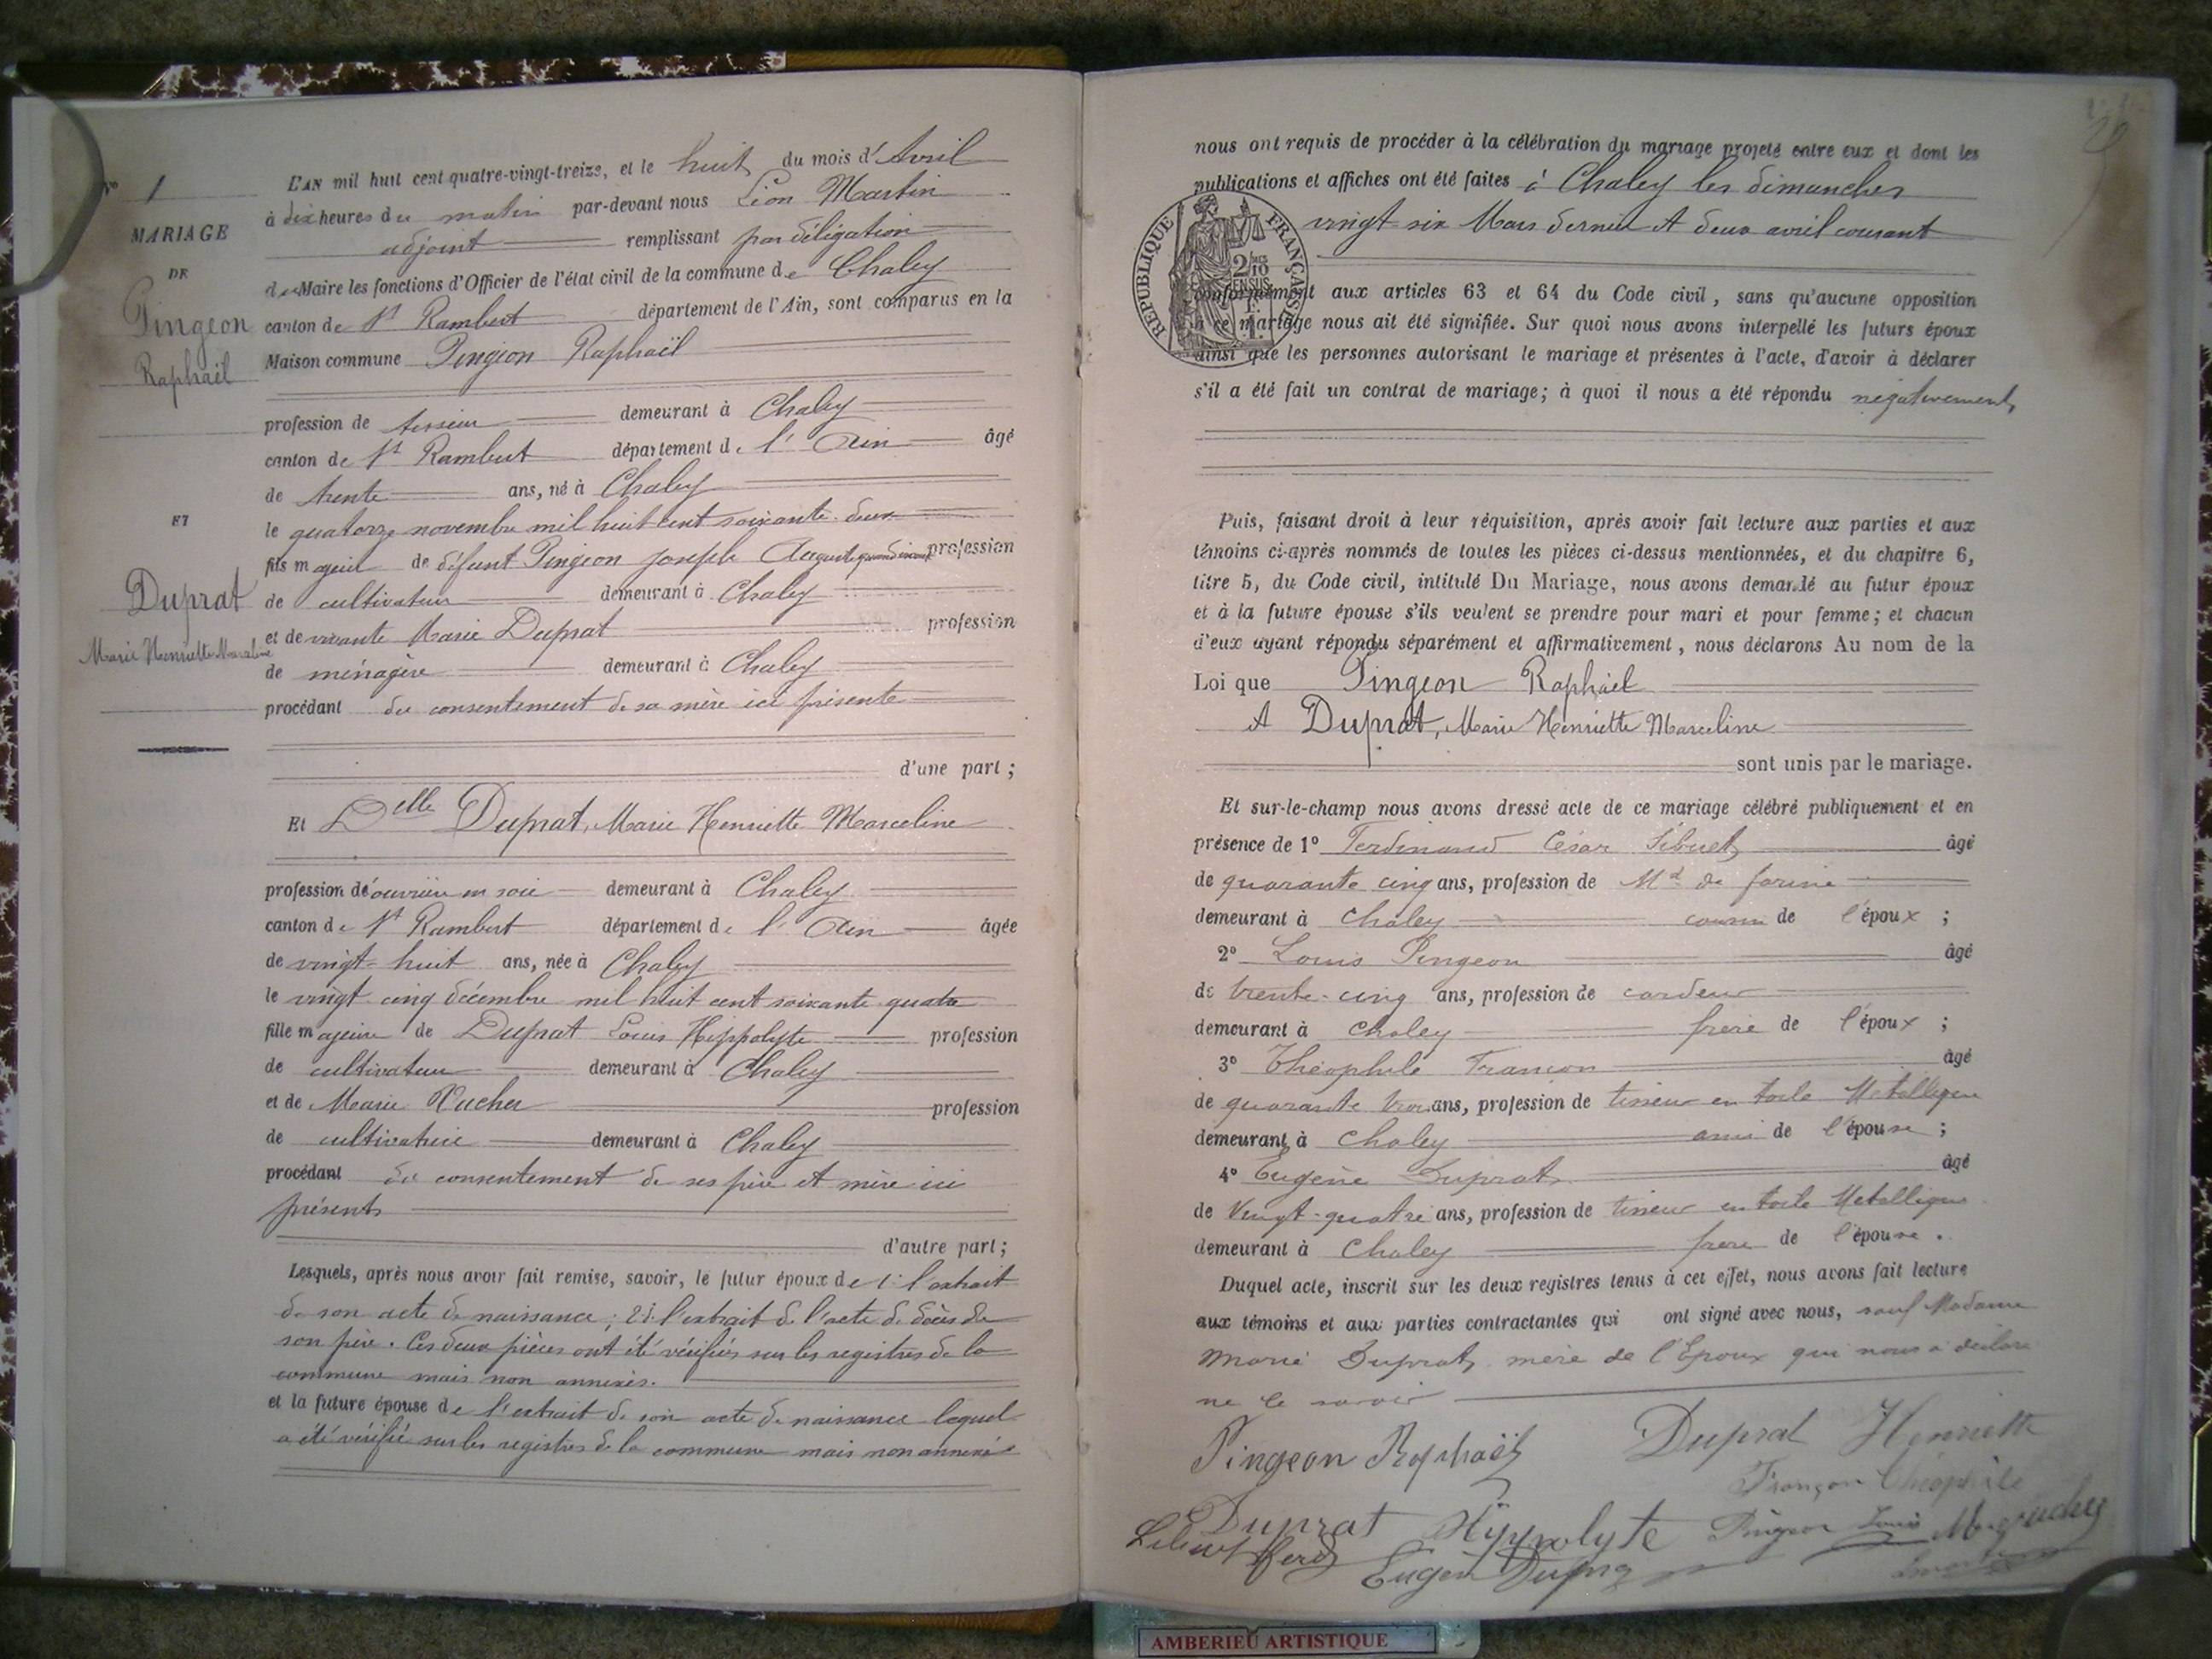 N° 1
MARIAGE
DE
Pingeon
Raphaël
ET
Duprat
Marie Henriette Marceline
L'AN mil huit cent quatre-vingt-treize, et le huit du mois d'Avril
à dix heures du matin par-devant nous Léon Martin
adjoint remplissant par délégation
du Maire les fonctions d'Officier de l'état civil de la commune de Chaley
canton de St Rambert département de l'Ain, sont comparus en la
Maison commune Pingeon Raphaël
profession de tisseur demeurant à Chaley
canton de St Rambert département de l'Ain âgé
de trente ans, né à Chaley
le quatorze novembre mil huit cent soixante deux
fils majeur de défunt Pingeon Joseph August quand vivant profession
de cultivateur demeurant à Chaley
et de vivante Marie Duprat profession
de ménagère demeurant à Chaley
procédant du consentement de sa mère ici présente
d'une part ;
Et Delle Duprat, Marie Henriette Marceline
profession d'ouvrière en soie demeurant à Chaley
canton de St Rambert département de l'Ain âgée
de vingt-huit ans, née à Chaley
le vingt cinq décembre mil huit cent soixante quatre
fille majeure de Duprat Louis Hippolyte profession
de cultivateur demeurant à Chaley
et de Marie profession
de cultivatrice demeurant à Chaley
procédant du consentement de ses père et mère ici
présents
d'autre part ;
Lesquels, après nous avoir fait remise, savoir, le futur époux de 1° l'extrait
de son acte de naissance ; 2° l'extrait de l'acte de décès de
son père. Ces deux pièces ont été vérifiées sur les registres de la
commune mais non annexés.
et la future épouse de l'extrait de son acte de naissance lequel
a été vérifié sur les registres de la commune mais non annexé
nous ont requis de procéder à la célébration du mariage projeté entre eux et dont les
publications et affiches ont été faites à Chaley les dimanches
vingt-six Mars dernier et deux avril courant
RÉPUBLIQUE FRANÇAISE
conformément aux articles 63 et 64 du Code civil, sans qu'aucune opposition
à ce mariage nous ait été signifiée. Sur quoi nous avons interpellé les futurs époux
ainsi que les personnes autorisant le mariage et présentes à l'acte, d'avoir à déclarer
s'il a été fait un contrat de mariage; à quoi il nous a été répondu négativement
Puis, faisant droit à leur réquisition, après avoir fait lecture aux parties et aux
témoins ci-après nommés de toutes les pièces ci-dessus mentionnées, et du chapitre 6,
titre 5, du Code civil, intitulé Du Mariage, nous avons demandé au futur époux
et à la future épouse s'ils veulent se prendre pour mari et pour femme; et chacun
d'eux ayant répondu séparément et affirmativement, nous déclarons Au nom de la
Loi que Pingeon Raphaël
et Duprat, Marie Henriette Marceline
sont unis par le mariage.
Et sur-le-champ nous avons dressé acte de ce mariage célébré publiquement et en
présence de 1° Ferdinand César Sibuet âgé
de quarante cinq ans, profession de Md de farine
demeurant à Chaley cousin de l'époux ;
2° Louis Pingeon âgé
de trente-cinq ans, profession de cardeur
demeurant à Chaley frère de l'époux ;
3° Théophile Françon âgé
de quarante trois ans, profession de tisseur en toile Métallique
demeurant à Chaley ami de l'épouse ;
4° Eugène Duprat âgé
de Vingt-quatre ans, profession de tisseur en toile Métallique
demeurant à Chaley frère de l'épouse.
Duquel acte, inscrit sur les deux registres tenus à cet effet, nous avons fait lecture
aux témoins et aux parties contractantes qui ont signé avec nous, sauf Madame
Marie Duprat, mère de l'Époux qui nous a déclaré
ne le savoir
Pingeon Raphaël Duprat Henriette
Françon Théophile
Duprat Hyppolyte Pingeon Louis
Sibuet Ferd Eugène Duprat
AMBERIEU ARTISTIQUE